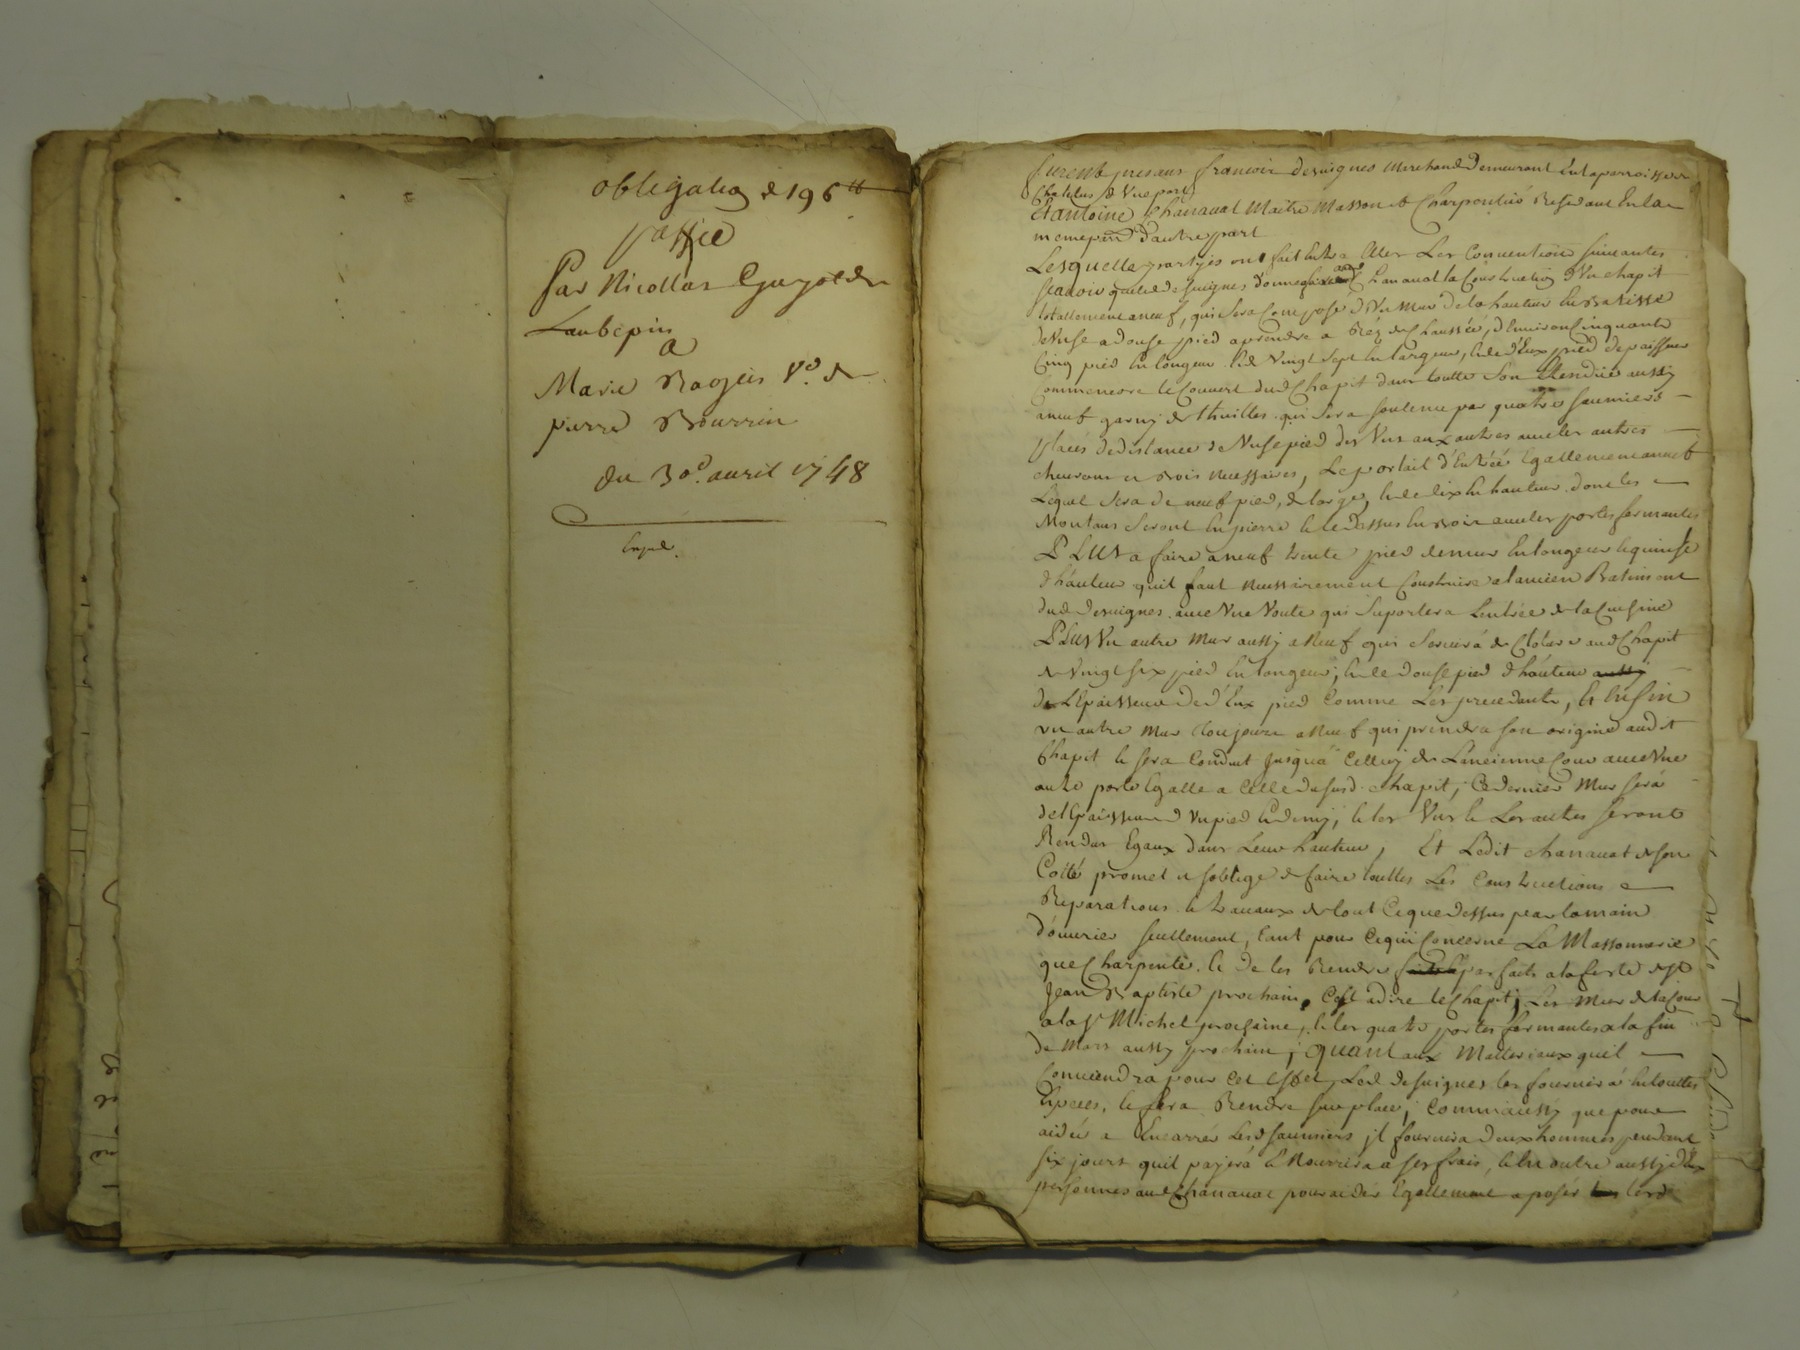 obligation de 196 ₶
passée
Par Nicollas Guyot de
Laubepin
a
Marie Rageis Ve. de
pierre Bourrin
du 30e. avril 1748
furent presans francois desvignes Marchand Demeurant En la parroisse de
Chatelus d'Vne part
Et antoine Chanavat Maitre Masson et Charpentié Residant En la
meme par. d'autre part
Lesquelle partyes ont fait Entre Elles Les Convention suivantes
scavoir que led. desvignes donne a Chanavat la Construction d'Vn chapit
totallement a neuf, qui sera Composé d'Vn Mur de la hauteur En Batisse
de Vnse a douse pied a prendre a Réz de Chaussée, d'Environ Cinquante
Cinq pied En longeur Et de Vingt sept En largeur, Et de d'Eux pied d'epaisseur
Comme encore le Couvert dud. Chapit dans toutte son Etendüe aussy
a neuf garny de thuilles qui sera soutenu par quatre saumiers
placés de distance de Vnse pied des Vns aux autres avec les autres
chevrons et Bois necessaires, Le portail d'Entrée Egallement a neuf
Lequel sera de neuf pied, de large, Et de dix En hauteur dont les
Montans seront En pierre Et le Dessus En Bois avec les portes fermantes
PLUS a faire a neuf trente pied de mur En longeur Et quinse
d'hauteur quil faut necessairement Construire a lancien Batiment
dud. desvignes avec Vne Voute qui suportera Lentrée de la Cuisine
PLUS Vn autre Mur aussy a Neuf qui servira de Cloture aud. Chapit
de Vingt six pied En longeur, Et de douse pied d'hauteur aussy
de LEpaisseur de d'Eux pied Comme Les precedants, Et Enfin
vn autre Mur toujours a Neuf qui prendra son origine audit
Chapit Et sera Conduit jusqua Celluy de Lancienne Cour avec Vne
autre porte Egalle a Celle du susd. chapit, Ce dernier Mur sera
de lEpaisseur d'vn pied Et demy, Et les Vns Et Les autres seront
Rendus Egaux dans Leur hauteur, Et Ledit chanavat de son
Coité promet et soblige de faire touttes Les Constructions
Reparations Et travaux de tout Ce que Dessus par la main
d'ouvrier seullement, tant pour Ce qui Concerne La Massonnerie
que Charpente, Et De les Rendre parfaits a la feste de St
Jean Baptiste prochain, C'est a dire le Chapit, Les Mur de la Cour
a la St Michel prochaine, Et les quatre portes fermantes a la fin
de Mars aussy prochain; QUANT aux Matteriaux quil
Conviendra pour Cet Effet, Led. desvignes les fournira En touttes
Especes, Et fera Rendre sur place; Comm'aussy que pour
aider a Encarrer Lesd. saumiers jl fournira deux hommes pendant
six jours quil payera Et Nourrira a ses frais, Et En outre aussy d'Eux
personnes aud. Chanavat pour aider Egallement a poser lesd.